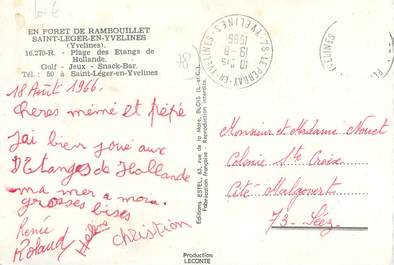 10-€
EN FORET DE RAMBOUILLET
SAINT-LEGER-EN-YVELINES
(Yvelines).
16.270-R. - Plage des Etangs de
Hollande.
Golf - Jeux - Snack-Bar.
Tél. : 50 à Saint-Léger-en-Yvelines
(78)
18 Août 1966.
Chères mémé et pépé
j'ai bien joué aux
D'Etanges de Hollande
ma mer a moza.
grosses bises
Renée
Roland
Hélène
Christian
Editions ESTEL, 63, rue de la Mare, BLOIS (L.-et-C.)
Fabrication française - Reproduction interdite.
Production
LECONTE
78 LE PERRAY-EN-YVELINES
YVELINES
19-8
1966
Monsieur et Madame Nouet
Colonie Ste Croix
Cité Malgovert
73 - Séez